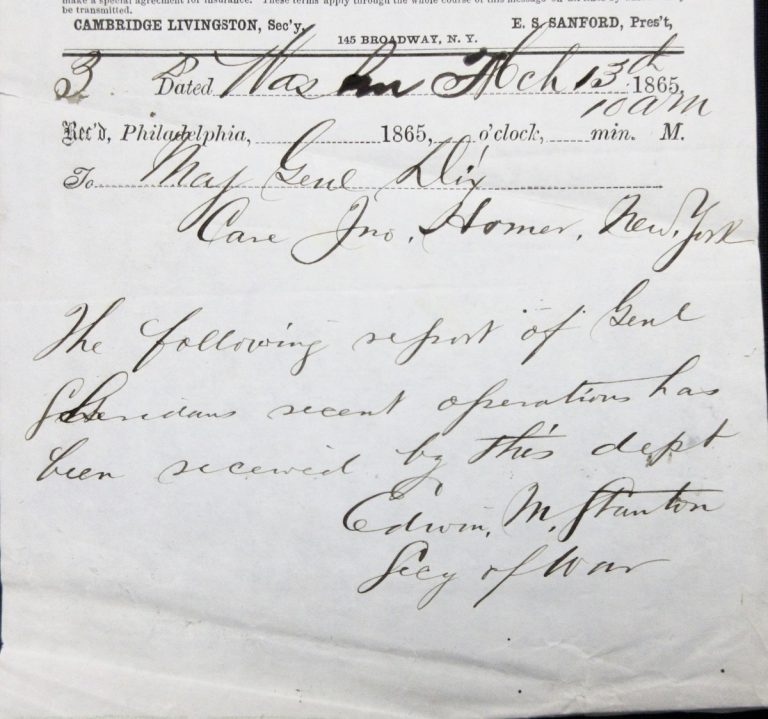 make a special agreement for insurance. These terms apply through the whole course of this message on all lines by
be transmitted.
CAMBRIDGE LIVINGSTON, Sec'y, E. S. SANFORD, Pres't,
145 BROADWAY, N. Y.
3 Dated Washn Mch 13th 1865,
10 am
Rec'd, Philadelphia, 1865, o'clock, min. M.
To Maj Genl Dix
Care Jno. Homer, New York
The following report of Genl
Sheridans recent operations has
been received by this dept
Edwin. M. Stanton
Secy of War